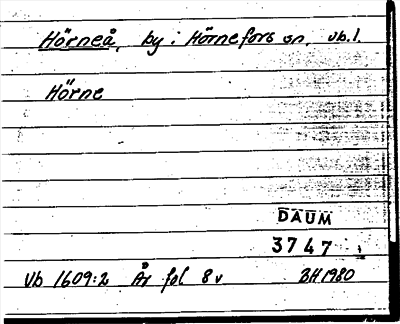 Hörneå, by i Hörnefors sn, vb.l.
Hörne
DAUM
3747
Vb 1609:2 År fol 8v BH 1980